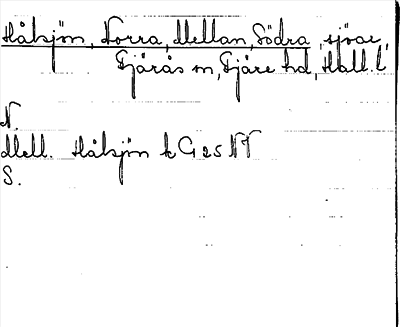 Håksjön, Norra, Mellan, Södra, sjöar,
Fjärås sn, Fjäre hd, Hall. l.
N.
Mell. Håksjön k G 25 NV
S.